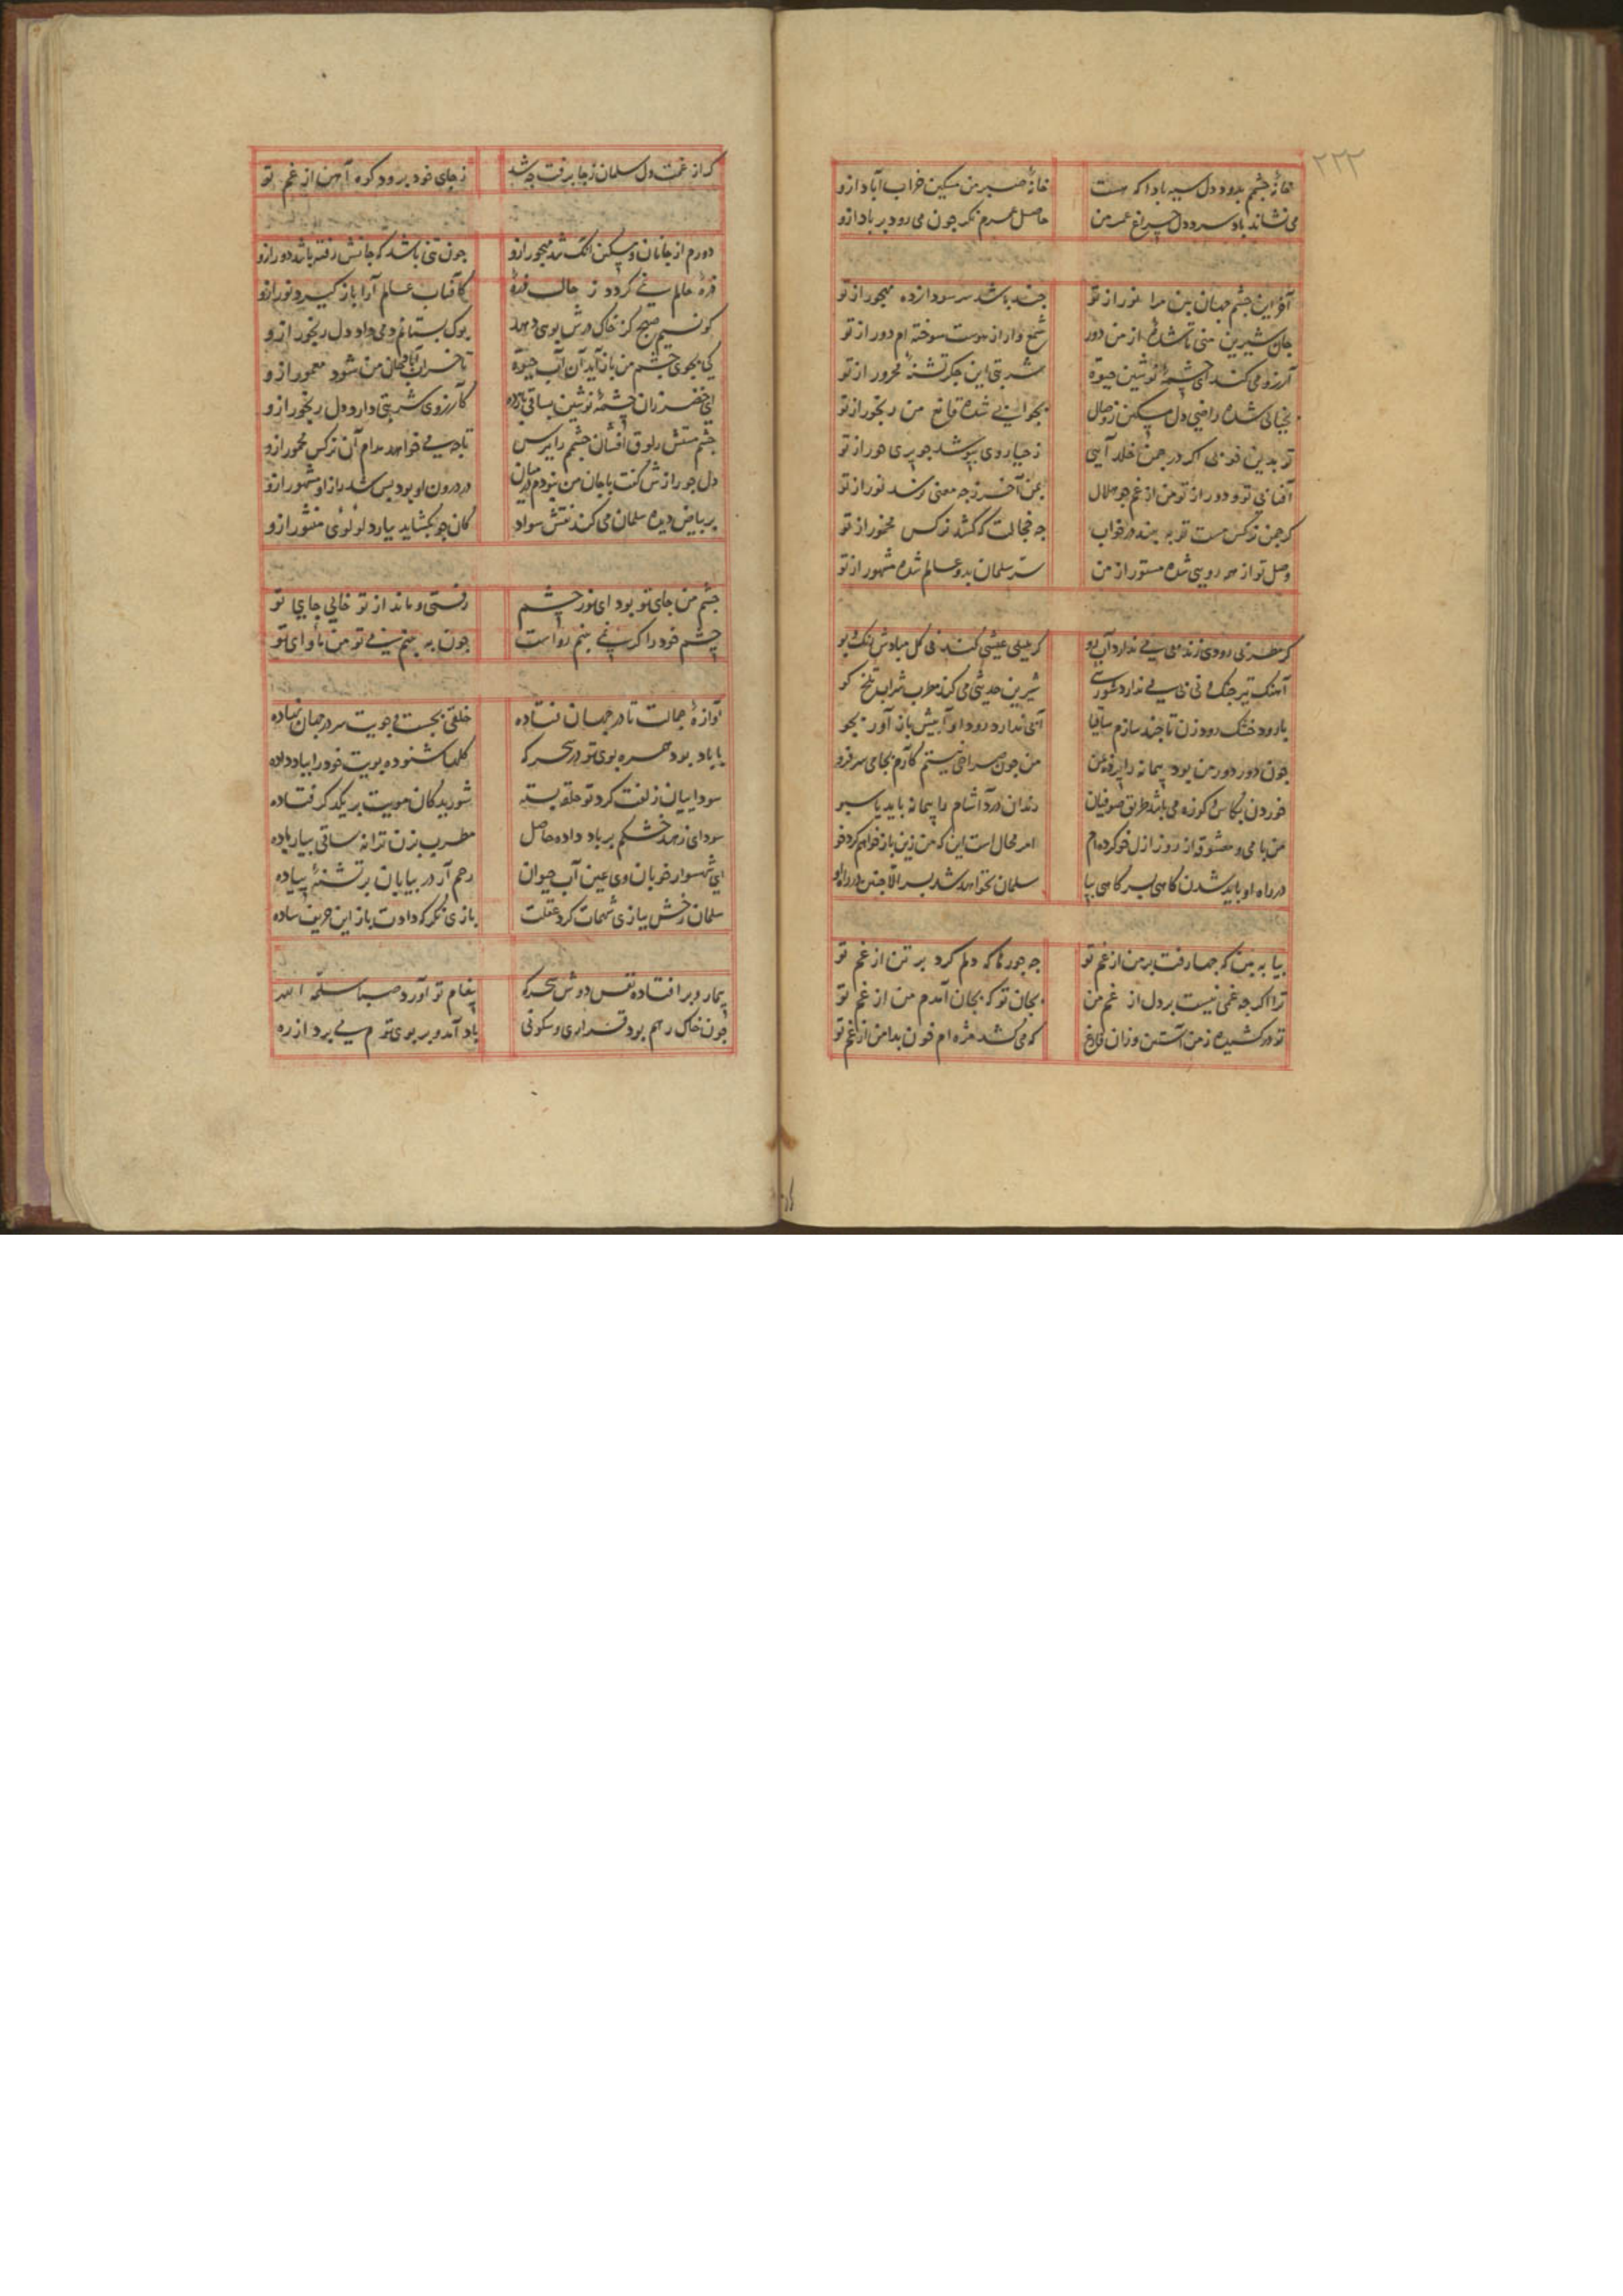 ٢٢٢
خانهٔ چشم بدود دل سیه بادا که هست خانهٔ صبر من مسکین خراب آباد ازو
می نشاند باد سرد دل چراغ عمر من حاصل عمرم نکر چون می رود بر باد ازو
آخر این چشم جهان بین مرا نور از تو چند باشد سر سودا زده مهجور از تو
جان شیرین منی تا شدهٔ از من دور شمع وار از هوست سوخته ام دور از تو
آرزو می کند ای چشمهٔ نوشین حیوة شربتی این جکر تشنهٔ محرور از تو
بخیالی شده راضی دل مسکین ز وصال بجوابی شده قانع من رنجور از تو
تو بدین خوبی اکر در چمن خلد آیی ز حیا روی بپوشد چو پری حور از تو
آفتابی تو و دور از تو من از غم چو هلال بمن آخر ز چه معنی نرسد نور از تو
کر چمن نرکس مست تو به بیند در خواب چه خجالت که کشد نرکس مخمور از تو
وصل تو از همه رویی شده مستور از من سر سلمان بدو عالم شده مشهور از تو
کر مطربی رودی زند بی می ندارد آب رو کر بلبلی عیشی کند بی کل مبادش رنک و بو
آهنک تیز چنک و نی بی می ندارد شورشی شیرین حدیثی می کند مطرب شراب تلخ کو
با رود خشک رود زن تا چند سازم ساقیا آبی ندارد رود او آبیش باز آور بجو
چون دور دور من بود پیمانه را پر ده من من چون صراحی نیستم کآرم بجامی سر فرو
خوردن بکاس و کوزه می باشد طریق صوفیان رندان درد آشام را پیمانه باید یا سبو
من با می و معشوق از روز ازل خو کرده ام امر محال است این که من زین باز خواهم کرد خو
در راه او باید شدن کاهی بسر کاهی بپا سلمان نخواهد شد بسر الا چنین در راه او
بیا به بین که چها رفت بر من از غم تو چه جورها که دلم کرد بر تن از غم تو
ترا اکر چه غمی نیست بر دل از غم من بجان تو که بجان آمدم من از غم تو
تو در کشیده ز من آستین و زان فارغ که می کشد مژه ام خون بدامن از غم تو
که از غمت دل سلمان ز جا برفت چه شد ز جای خود برود کوه آهن از غم تو
دورم از جانان و مسکین آنک شد مهجور ازو چون تنی باشد که جانش رفته باشد دور ازو
ذره حالم نمی کردد ز حالت ذرهٔ کآفتاب عالم آرا باز کیرد نور ازو
کو نسیم صبح کز خاک درش بوی دهد بوک بستانم دمی داد دل رنجور ازو
کی بجوی چشم من باز آید آن آب حیوة تا خراب آباد جان من شود معمور ازو
ای خضر زان چشمهٔ نوشین بساقی کآرزوی شربتی دارد دل رنجور ازو
چشم مستش راوق افشان چشم را بپرس تا چه می خواهد مدام آن نرکس مخمور ازو
دل چو رازش کفت با جان من نبودم در میان در درون او بود بس شد راز او مشهور ازو
بر بیاض دیده سلمان می کند نقش سواد کان چو بکشاید ببارد لؤلؤی منثور ازو
چشم من جای تو بود ای نور چشم رفتی و ماند از تو خالی جای تو
چشم خود را کر نمی بینم رواست چون به بینم بی تو من مأوای تو
آوازهٔ جمالت تا در جهان فتاده خلقی بجست و جویت سر در جهان نهاده
با باد بود همره بوی تو در سحرکه کلها شنوده بویت خود را بباد داده
سوداییان زلفت کرد تو حلقه بسته شوریدکان مویت بر یکدکر فتاده
سودای زهد خشکم بر باد داده حاصل مطرب بزن ترانه ساقی بیار باده
ای شهسوار خوبان وی عین آب حیوان رحم آر در بیابان بر تشنهٔ پیاده
سلمان رخش ببازی شهمات کرد عقلت بازی نکر که دادت باز این حریف ساده
بیمار و بر افتاده نفس دوش سحرکه پیغام تو آورد صبا سلمه الله
چون خاک رهم بود قراری و سکونی باد آمد و بر بوی توم می برد از ره